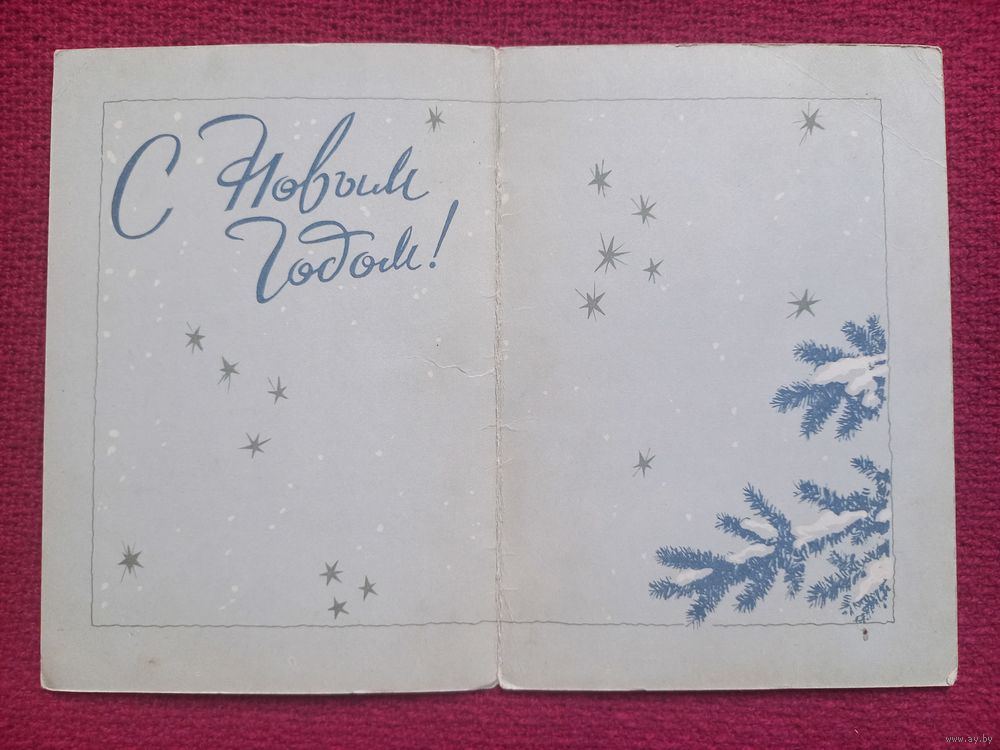 С Новым
Годом!
www.ay.by